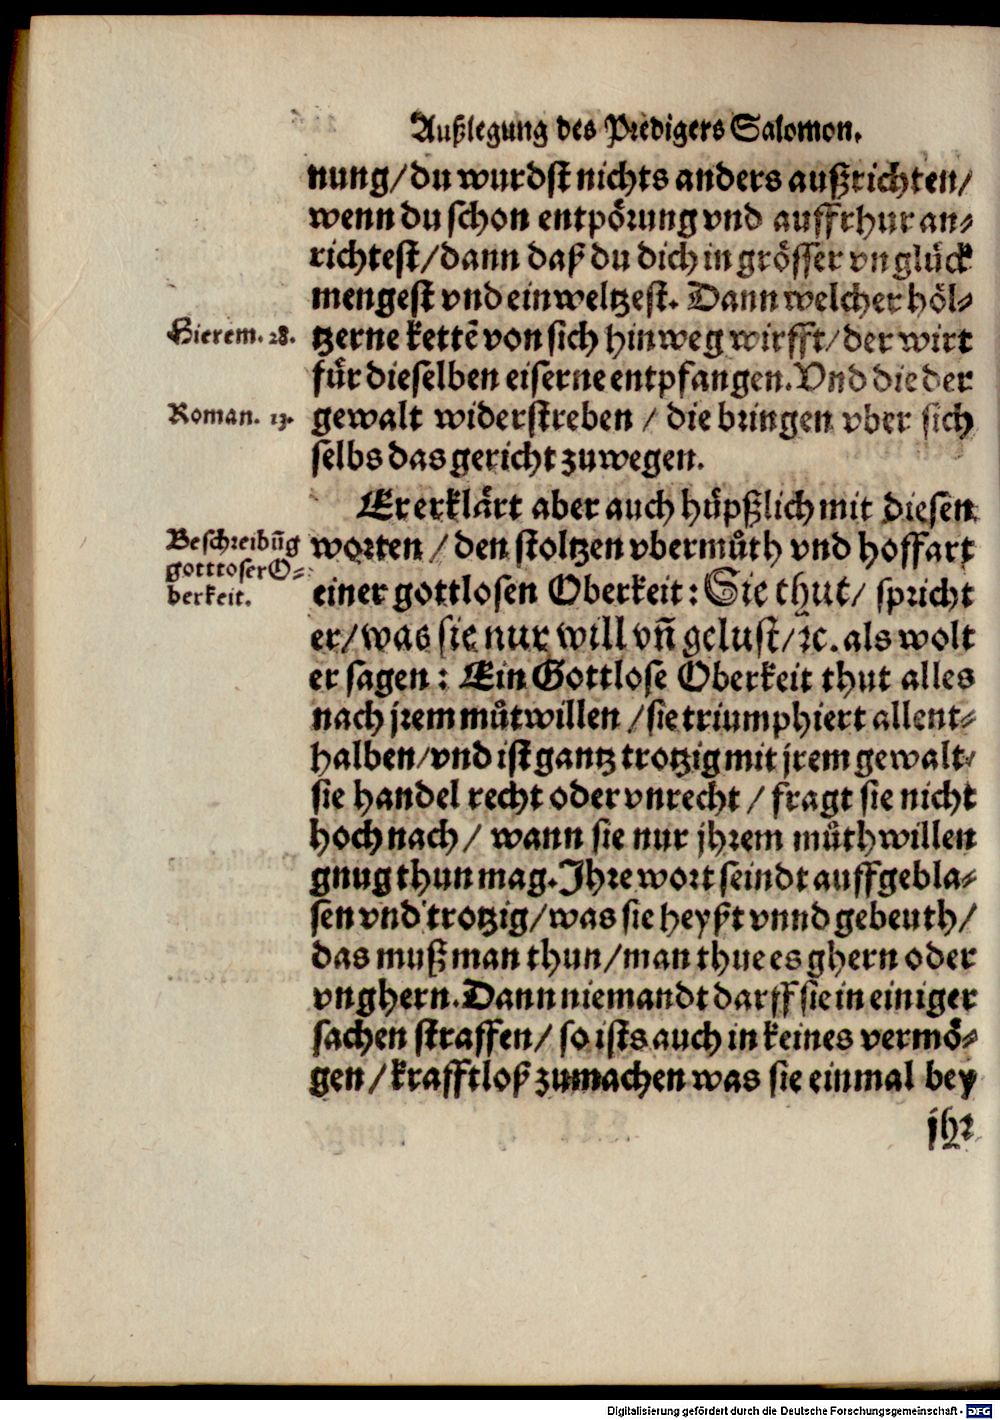 Außlegung des Predigers Salomon.
nung/du wurdst nichts anders außrichten/
wenn du schon entpörung vnd auffrhur an⸗
richtest/dann daß du dich in grösser vnglück
mengest vnd einweltzest. Dann welcher höl⸗
Hierem. 28.
tzerne kettẽ von sich hinweg wirfft/der wirt
für dieselben eiserne entpfangen. Vnd die der
Roman. 13.
gewalt widerstreben / die bringen vber sich
selbs das gericht zuwegen.
Er erklärt aber auch hüpßlich mit diesen
Beschreibũg
gotttoser O⸗
berkeit.
worten / den stoltzen vbermůth vnd hoffart
einer gottlosen Oberkeit: Sie thut/ spricht
er/was sie nur will vñ gelust/ꝛc. als wolt
er sagen: Ein Gottlose Oberkeit thut alles
nach jrem můtwillen /sie triumphiert allent⸗
halben/vnd ist gantz trotzig mit jrem gewalt/
sie handel recht oder vnrecht / fragt sie nicht
hoch nach / wann sie nur jhrem můthwillen
gnug thun mag. Ihre wort seindt auffgebla⸗
sen vnd trotzig/was sie heyßt vnnd gebeuth/
das muß man thun/man thue es ghern oder
vnghern. Dann niemandt darff sie in einiger
sachen straffen/ so ists auch in keines vermö⸗
gen /krafftloß zumachen was sie einmal bey
jhr
Digitalisierung gefördert durch die Deutsche Forschungsgemeinschaft - DFG